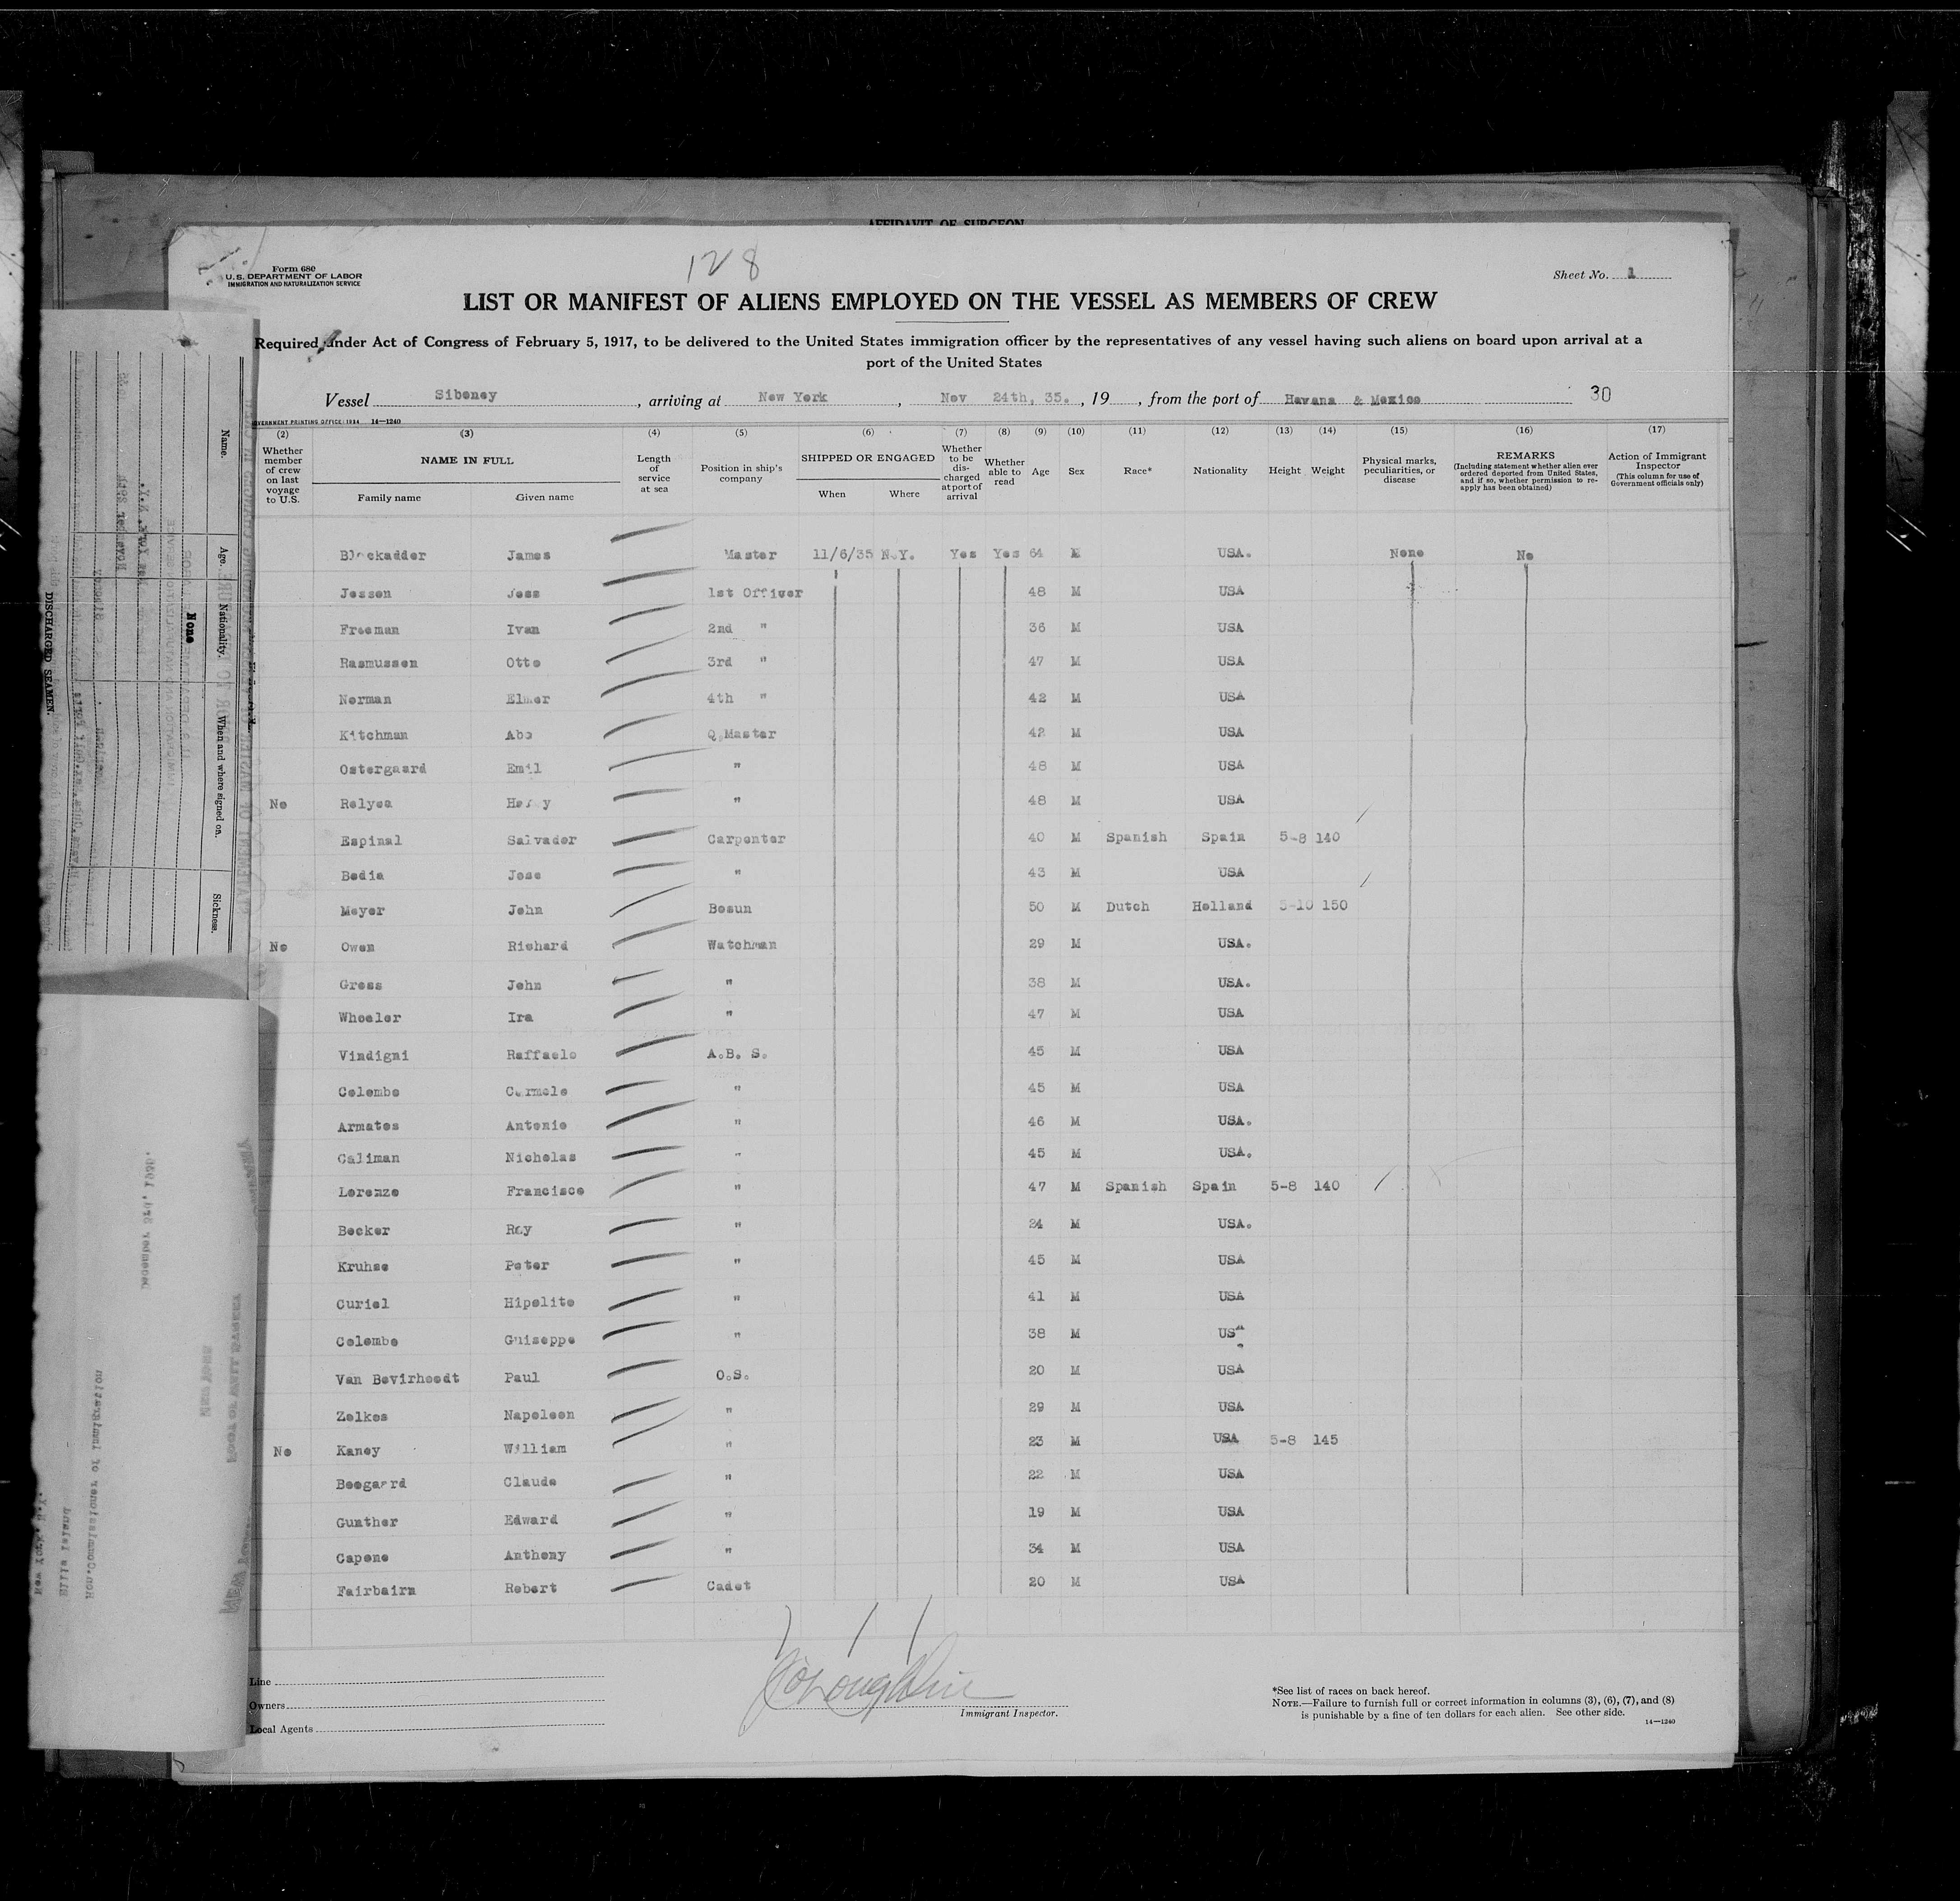 AFFIDAVIT OF SURGEON
128
Form 680
U.S. DEPARTMENT OF LABOR
IMMIGRATION AND NATURALIZATION SERVICE
Sheet No. 1
LIST OR MANIFEST OF ALIENS EMPLOYED ON THE VESSEL AS MEMBERS OF CREW
Required under Act of Congress of February 5, 1917, to be delivered to the United States immigration officer by the representatives of any vessel having such aliens on board upon arrival at a
port of the United States
Vessel Siboney , arriving at New York , Nov 24th, 35. , 19 , from the port of Havana & Mexico 30
GOVERNMENT PRINTING OFFICE: 1934 14—1240
(2) (3) (4) (5) (6) (7) (8) (9) (10) (11) (12) (13) (14) (15) (16) (17)
Whether member of crew on last voyage to U.S.
NAME IN FULL
Family name Given name
Length of service at sea
Position in ship's company
SHIPPED OR ENGAGED
When Where
Whether to be discharged at port of arrival
Whether able to read
Age Sex Race* Nationality Height Weight
Physical marks, peculiarities, or disease
REMARKS
(Including statement whether alien ever ordered deported from United States, and if so, whether permission to re-apply has been obtained)
Action of Immigrant Inspector
(This column for use of Government officials only)
Blackadder James Master 11/6/35 N.Y. Yes Yes 64 M USA. None No
Jessen Jess 1st Officer 48 M USA
Freeman Ivan 2nd " 36 M USA
Rasmussen Otto 3rd " 47 M USA
Norman Elmer 4th " 42 M USA
Kitchman Abe Q.Master 42 M USA
Ostergaard Emil " 48 M USA
No Relyea Harry " 48 M USA
Espinal Salvador Carpenter 40 M Spanish Spain 5-8 140
Bedia Jose " 43 M USA
Meyer John Bosun 50 M Dutch Holland 5-10 150
No Owen Richard Watchman 29 M USA.
Gross John " 38 M USA.
Wheeler Ira " 47 M USA
Vindigni Raffaelo A.B. S. 45 M USA
Colombo Carmelo " 45 M USA
Armatos Antonio " 46 M USA.
Caliman Nicholas " 45 M USA.
Lorenzo Francisco " 47 M Spanish Spain 5-8 140
Becker Roy " 24 M USA.
Kruhse Peter " 45 M USA
Curiel Hipolito " 41 M USA
Colombo Guiseppe " 38 M USA
Van Bevirhoodt Paul O.S. 20 M USA
Zolkos Napoleon " 29 M USA
No Kaney William " 23 M USA 5-8 145
Boogaard Claude " 22 M USA
Gunther Edward " 19 M USA
Capone Anthony " 34 M USA
Fairbairn Robert Cadet 20 M USA
Line
Owners
Local Agents
Immigrant Inspector.
*See list of races on back hereof.
NOTE.—Failure to furnish full or correct information in columns (3), (6), (7), and (8)
is punishable by a fine of ten dollars for each alien. See other side.
14—1240
DISCHARGED SEAMEN.
Name. Age. Nationality. When and where signed on. Sickness.
None
Hon.Commissioner of Immigration
Ellis Island
New York, N.Y.